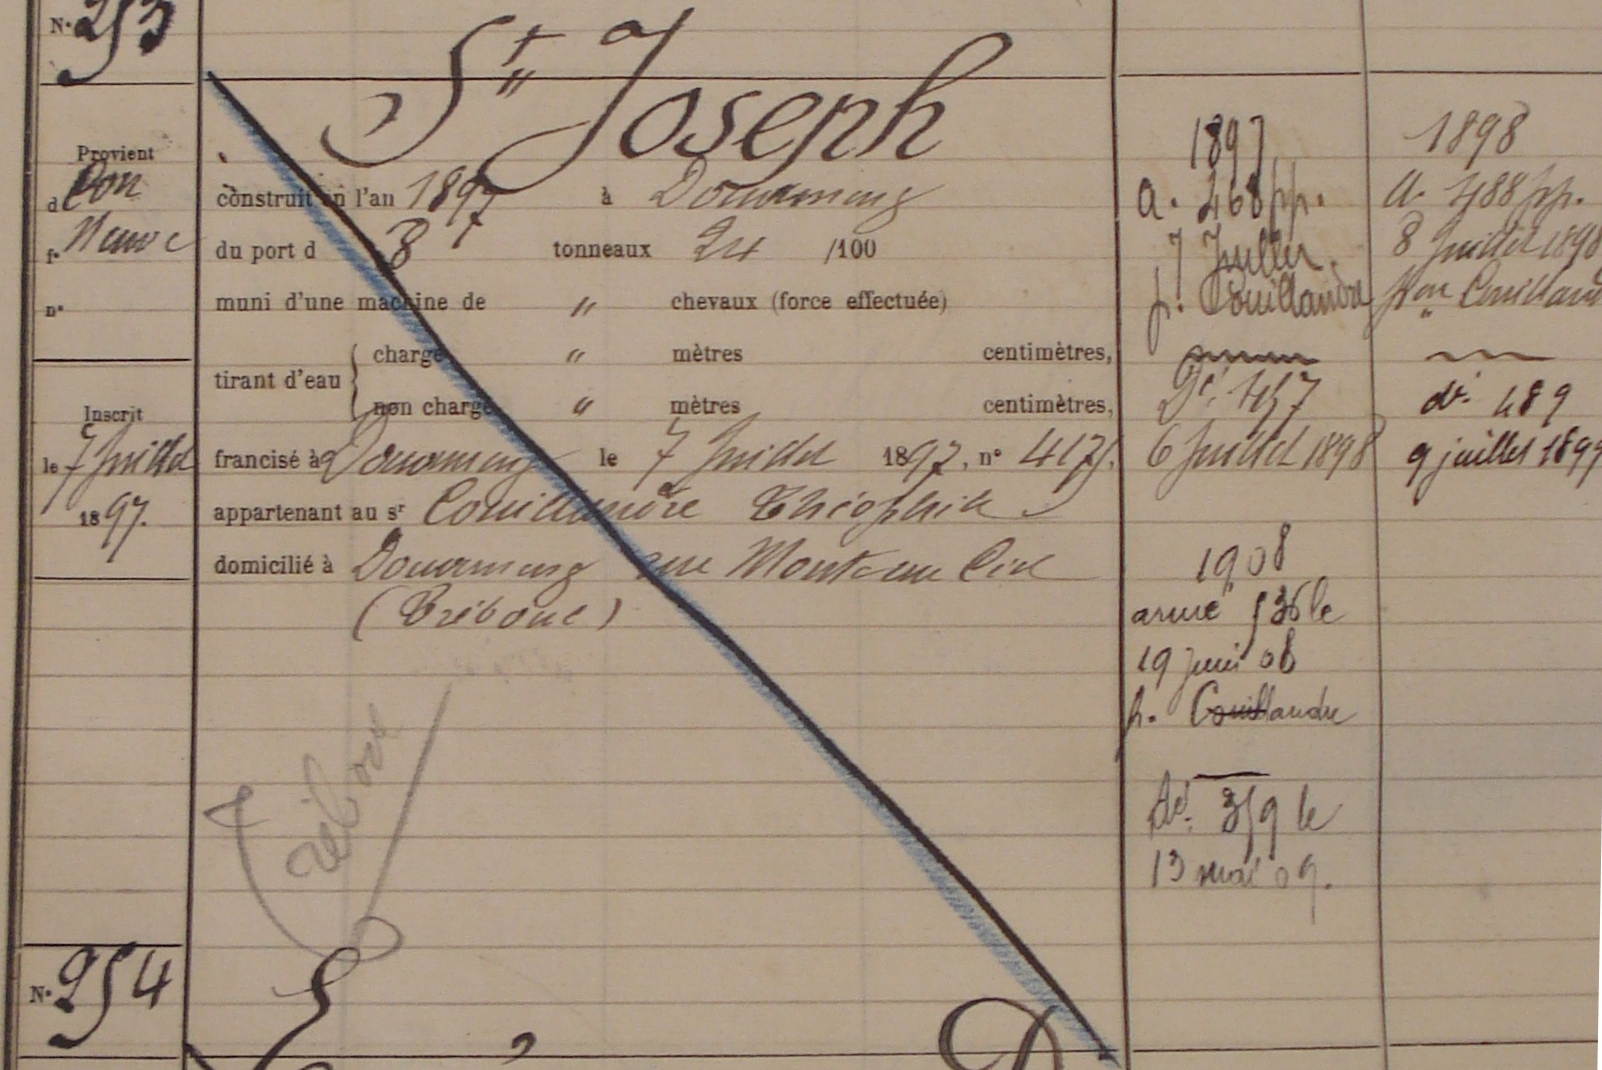 N° 253
St Joseph
Provient
d Con
f° Neuve
n°
construit en l'an 1897 à Douarnenez
du port d 8 tonneaux 24 /100
muni d'une machine de " chevaux (force effectuée)
tirant d'eau { chargé " mètres centimètres,
non chargé " mètres centimètres,
Inscrit
le 7 Juillet
1897.
francisé à Douarnenez le 7 Juillet 1897, n° 4175.
appartenant au sr Couillandre Théophile
domicilié à Douarnenez rue Monte au Ciel
(Tréboul)
Tréboul
1897
a. 468 pp.
7 Juillet.
p. Couillandre
Dé. 457
6 Juillet 1898
1908
armé 536 le
19 Juin 08
p. Couillandre
Dé. 359 le
13 mai 09.
1898
a. 488 pp.
8 Juillet 1898
pon Couilland
dé. 489
9 juillet 1899
N° 254